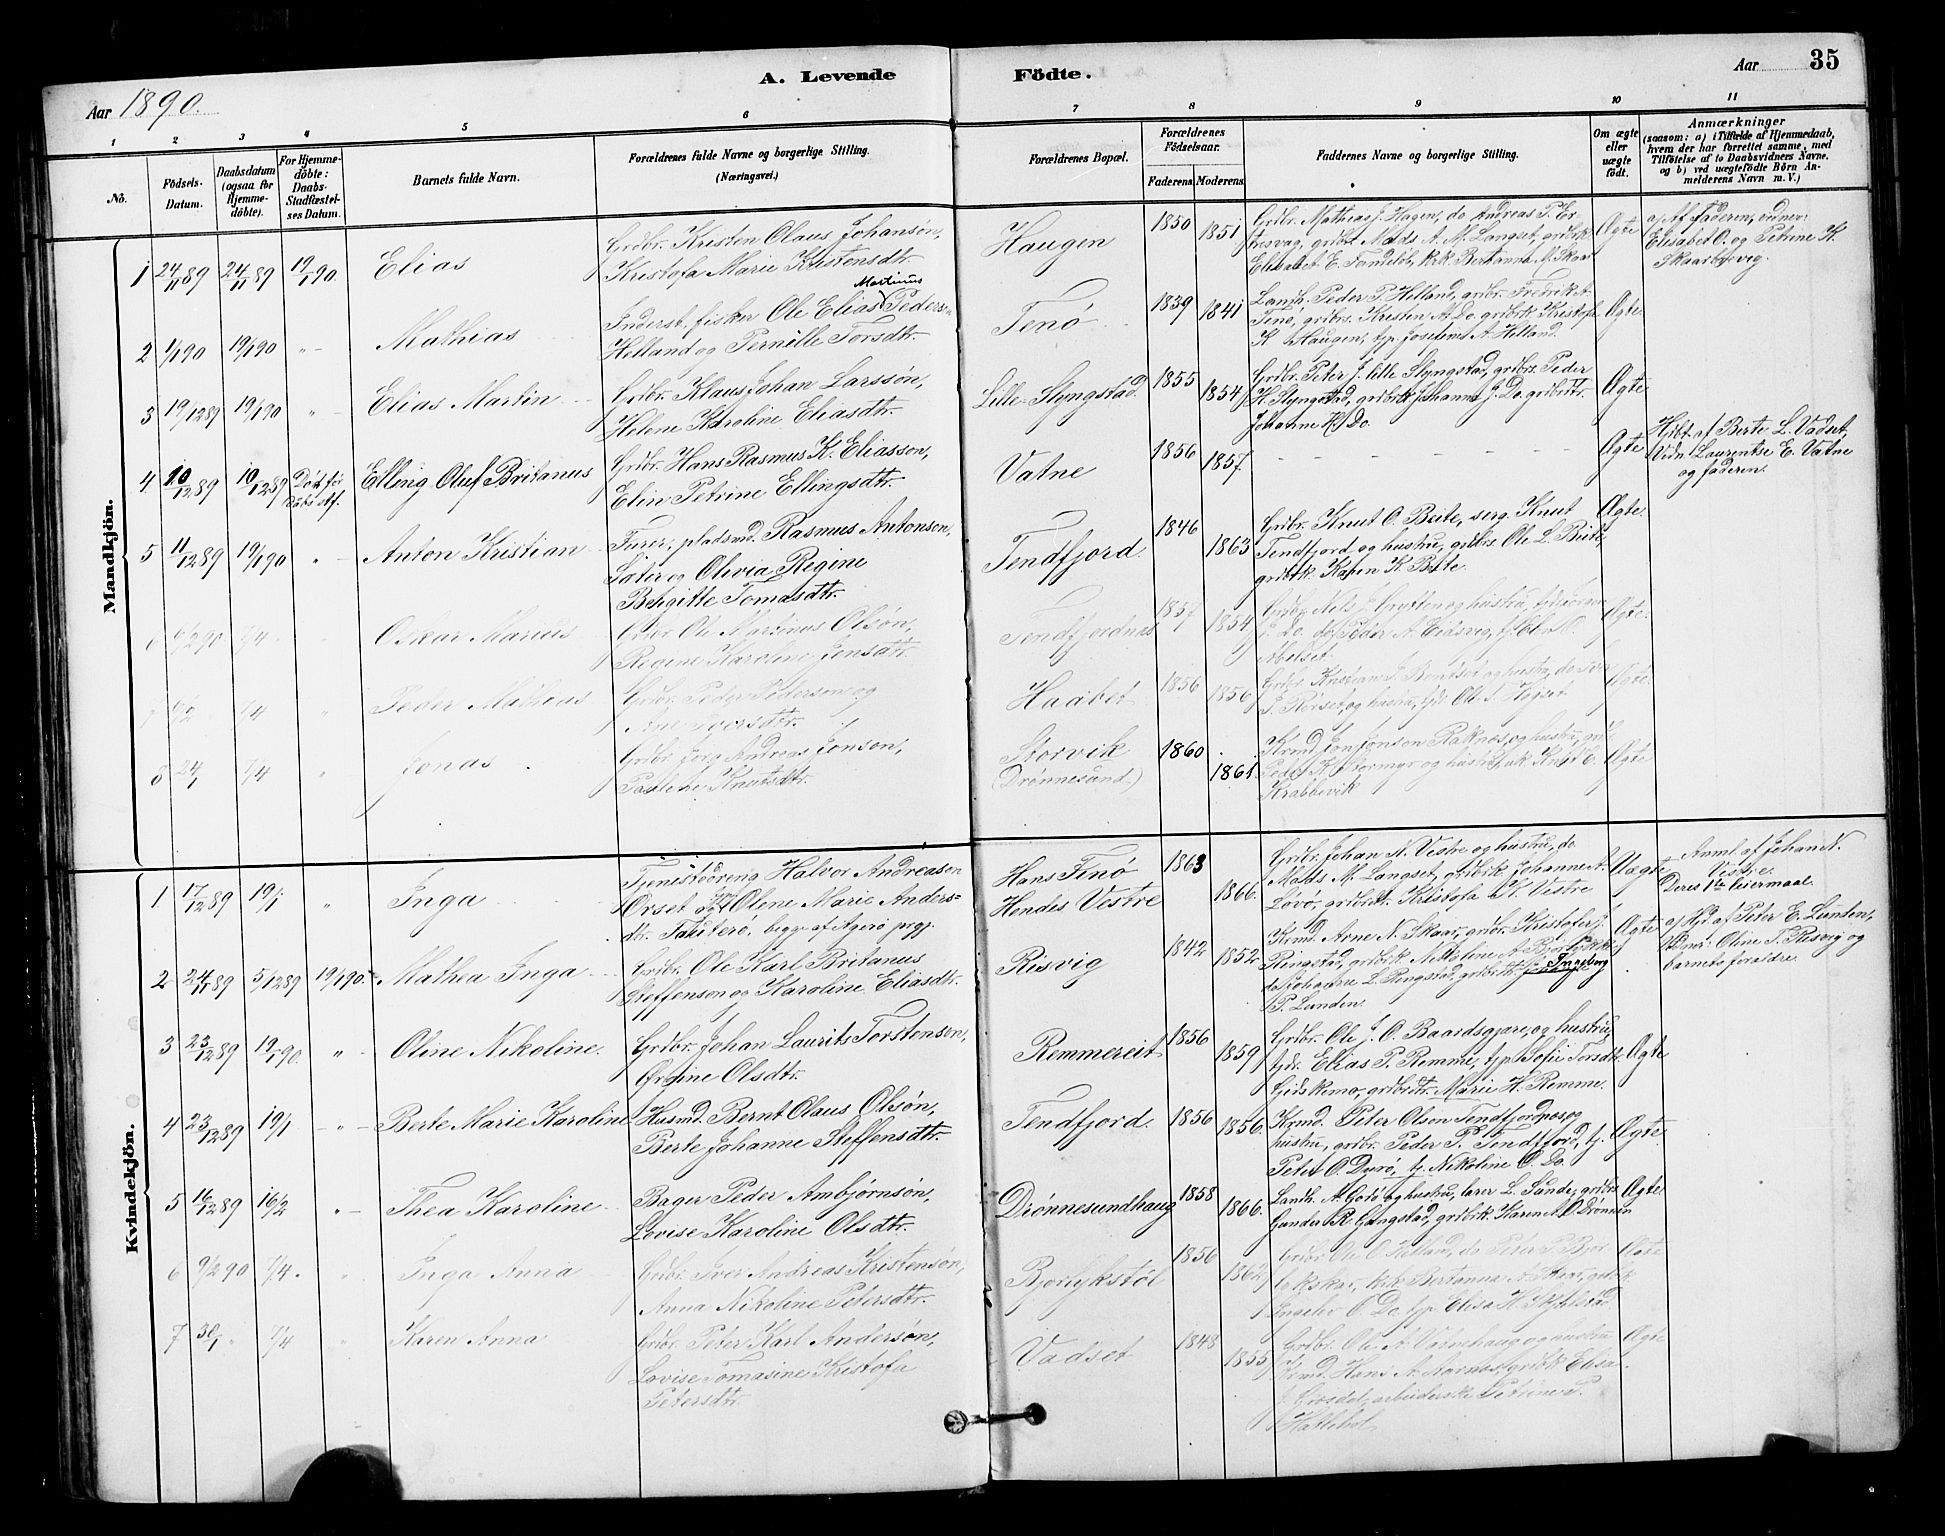 A. Levende Födte.
Aar 35
Aar 1890.
1 2 3 4 5 6 7 8 9 10 11
No.
Födsels-Datum.
Daabsdatum (ogsaa for Hjemme-döbte).
For Hjemme-döbte: Daabs-Stadfæstel-ses Datum.
Barnets fulde Navn.
Forældrenes fulde Navne og borgerlige Stilling. (Næringsvei.)
Forældrenes Bopæl.
Forældrenes Födselsaar.
Faderens. Moderens.
Faddernes Navne og borgerlige Stilling.
Om ægte eller uægte födt.
Anmærkninger (saasom: a) i Tilfælde af Hjemmedaab, hvem der har forrettet samme, med Tilföielse af to Daabsvidners Navne, og b) ved uægtefödte Börn An-melderens Navn m. V.)
Mandkjön.
1 24/11 89 24/11 89 19/1 90. Elias
Grdbr. Kristen Olaus Johansøn,
Kristofa Marie Knutsdtr.
Haugen 1850 1851
Grdbr. Mathias J. Hagen, do Andreas P. Er
grdbr. Mads A. M. Langset, grdbrk
Ægte
a) Af faderen,
Elisabet O. og Petrine K.
Skaarbøvig.
2 1/1 90 19/1 90 " Mathias
Inderst, fisker Ole Elias Martinus Peders
Helland og Pernille Torsdtr.
Tenø 1839 1841
Landh. Peder P. Helland, grdbr. Fredrik A.
Tenø, grdbrs. Kristen A. Do. grdbrk Kristofa
K. Haugen, tjp. Josefine A. Helland.
Ægte
3 19/12 89 19/1 90 " Elias Martin
Grdbr. Klaus Johan Larssøn,
Helene Karoline Eliasdtr.
Lille-Slyngstad. 1855 1854
Grdbr. Peter J. Lille Slyngstad, grdbr. Peder
K. Slyngstad, grdbrk Johanna J. Do. grdbrdtr.
Johanne K. Do.
Ægte
4 10/12 89 10/12 89 Død før Elling Oluf Britanus
Grdbr. Hans Rasmus K. Eliasson,
Elin Petrine Ellingsdtr.
Vatne 1856 1857
Ægte
Hdbt. af Berte L. Vadset,
Vidn. Laurentse E. Vatne
og faderen.
5 11/12 89 19/1 90 " Anton Kristian
Furer, pladsmd. Rasmus Antonson
Sæter og Olivia Regine
Bergitte Tomasdtr.
Tendfjord 1846 1863
Grdbr. Knut O. Beite, serg. Knut
Tendfjord og hustru, grdbrs Ole L. Beite,
grdbrk. Karen K. Beite.
Ægte.
6 6/2 90 7/4 " Oskar Marius
Grdbr. Ole Martinus Olsøn,
Regine Karoline Jonsdtr.
Tendfjordnæs 1857 1854
Grdbr. Nels J. Grytten og hustru,
J. Do. do Peder A. Eidsvig, tj. Olu O.
Abelset
Ægte.
7 7/4 " Peder Mathias
Grdbr. Peder Pederson og
Ane Iversdtr.
Haabet 1856 1856
Grdbr Kristian J. og hustru,
J. Rørset, og hustru, tjdr Ole S.
Ægte.
8 24/1 7/4 " Jonas
Grdbr. Jørg. Andreas Jonson,
Pauline Knutsdtr.
Storvik
(Drønnesund.) 1860 1861
Krmd. Jon Jonson Raknes, og hustru,
Peder K. Stormyr og hustru, Knut E.
Krabbevik
Ægte
Kvindekjön.
1 17/12 89 19/1 " Inga
Tjenestedreng Halvor Andreason
Orset og Olene Marie Anders-
dtr. Tautero, begge af Agerø prgj.
Hans Tinø
Hendes Vestre 1863 1866.
Grdbr. Johan N. Vestre og hustru, do
Mads M. Langset, grdbrk Johanne A.
Løvø, grdbrdt. Kristofa K. Vestre
Uægte
Anml. af Johan N.
Vestre.
Deres 1te leiermaal.
2 24/11 89 5/12 89 19/1 90. Mathea Inga
Grdbr. Ole Karl Britanus
Steffenson og Karoline Eliasdtr.
Risvig 1842 1852
Krmd. Arne N. Skaar, grdbr. Kristofer J.
Ringstad, grdbrk Nikoline A.
do Johanne L. Ringstad, grdbrdtr. Ingeborg
P. Lunden.
Ægte
a) Hjd. af Peter E. Lunden,
Oline T. Risvig og
barnets forældre.
3 23/12 89 19/1 90. " Oline Nikoline.
Grdbr. Johan Laurits Torstenson,
Olsdtr.
Remmereit 1856 1859
Grdbr. Ole J. O. Baardsgjære, og hustru,
tjdr. Elias P. Remme, tjp. Sofie Torsdtr.
Gidskemo, grdbrdtr. Marie H. Remme.
Ægte
4 23/12 89 19/1 " Berte Marie Karoline
Husmd. Bernt Olaus Olsøn,
Berte Johanne Steffensdtr.
Tendfjord. 1856 1856.
Krmd. Peter Olson Tendfjordnes og
hustru, grdbr. Peder P. Tendfjord, tj.
Peter O. Dyrø, tj. Nikoline O. Do.
Ægte.
5 16/12 89 16/2 " Thea Karoline
Bager Peder Ambjørnsøn,
Lovise Karoline Olsdtr.
Drønnesundhaug 1858 1866.
Landh. A. Godø og hustru, lærer L. Sunde, grdbrs
Gunder R. Gangstad, grdbrk. Karen A. O. Drønnen
Ægte
6 9/2 90 7/4. " Inga Anna
Grdbr. Iver Andreas Kristensøn,
Anna Nikoline Petersdtr.
Bjørlykstøl 1856 1862
Grdbr Ole O. Helland, do Peter P. Bjør
krk Bertanna A. Skar, grdbrk
Ingebr. O. Do. tjp. Elisa H.
Ægte
7 30/1 " 7/4 " Karen Anna
Grdbr. Peter Karl Andersøn,
Lovise Tomasine Kristofa
Petersdtr.
Vadset 1848 1855
Grdbr. Ole A. Vatnehaug og hustru
Krmd. Hans A. Stornæs, grdbrk Elisa
J. Grosdal, arbeiderske Petrine P.
Ægte